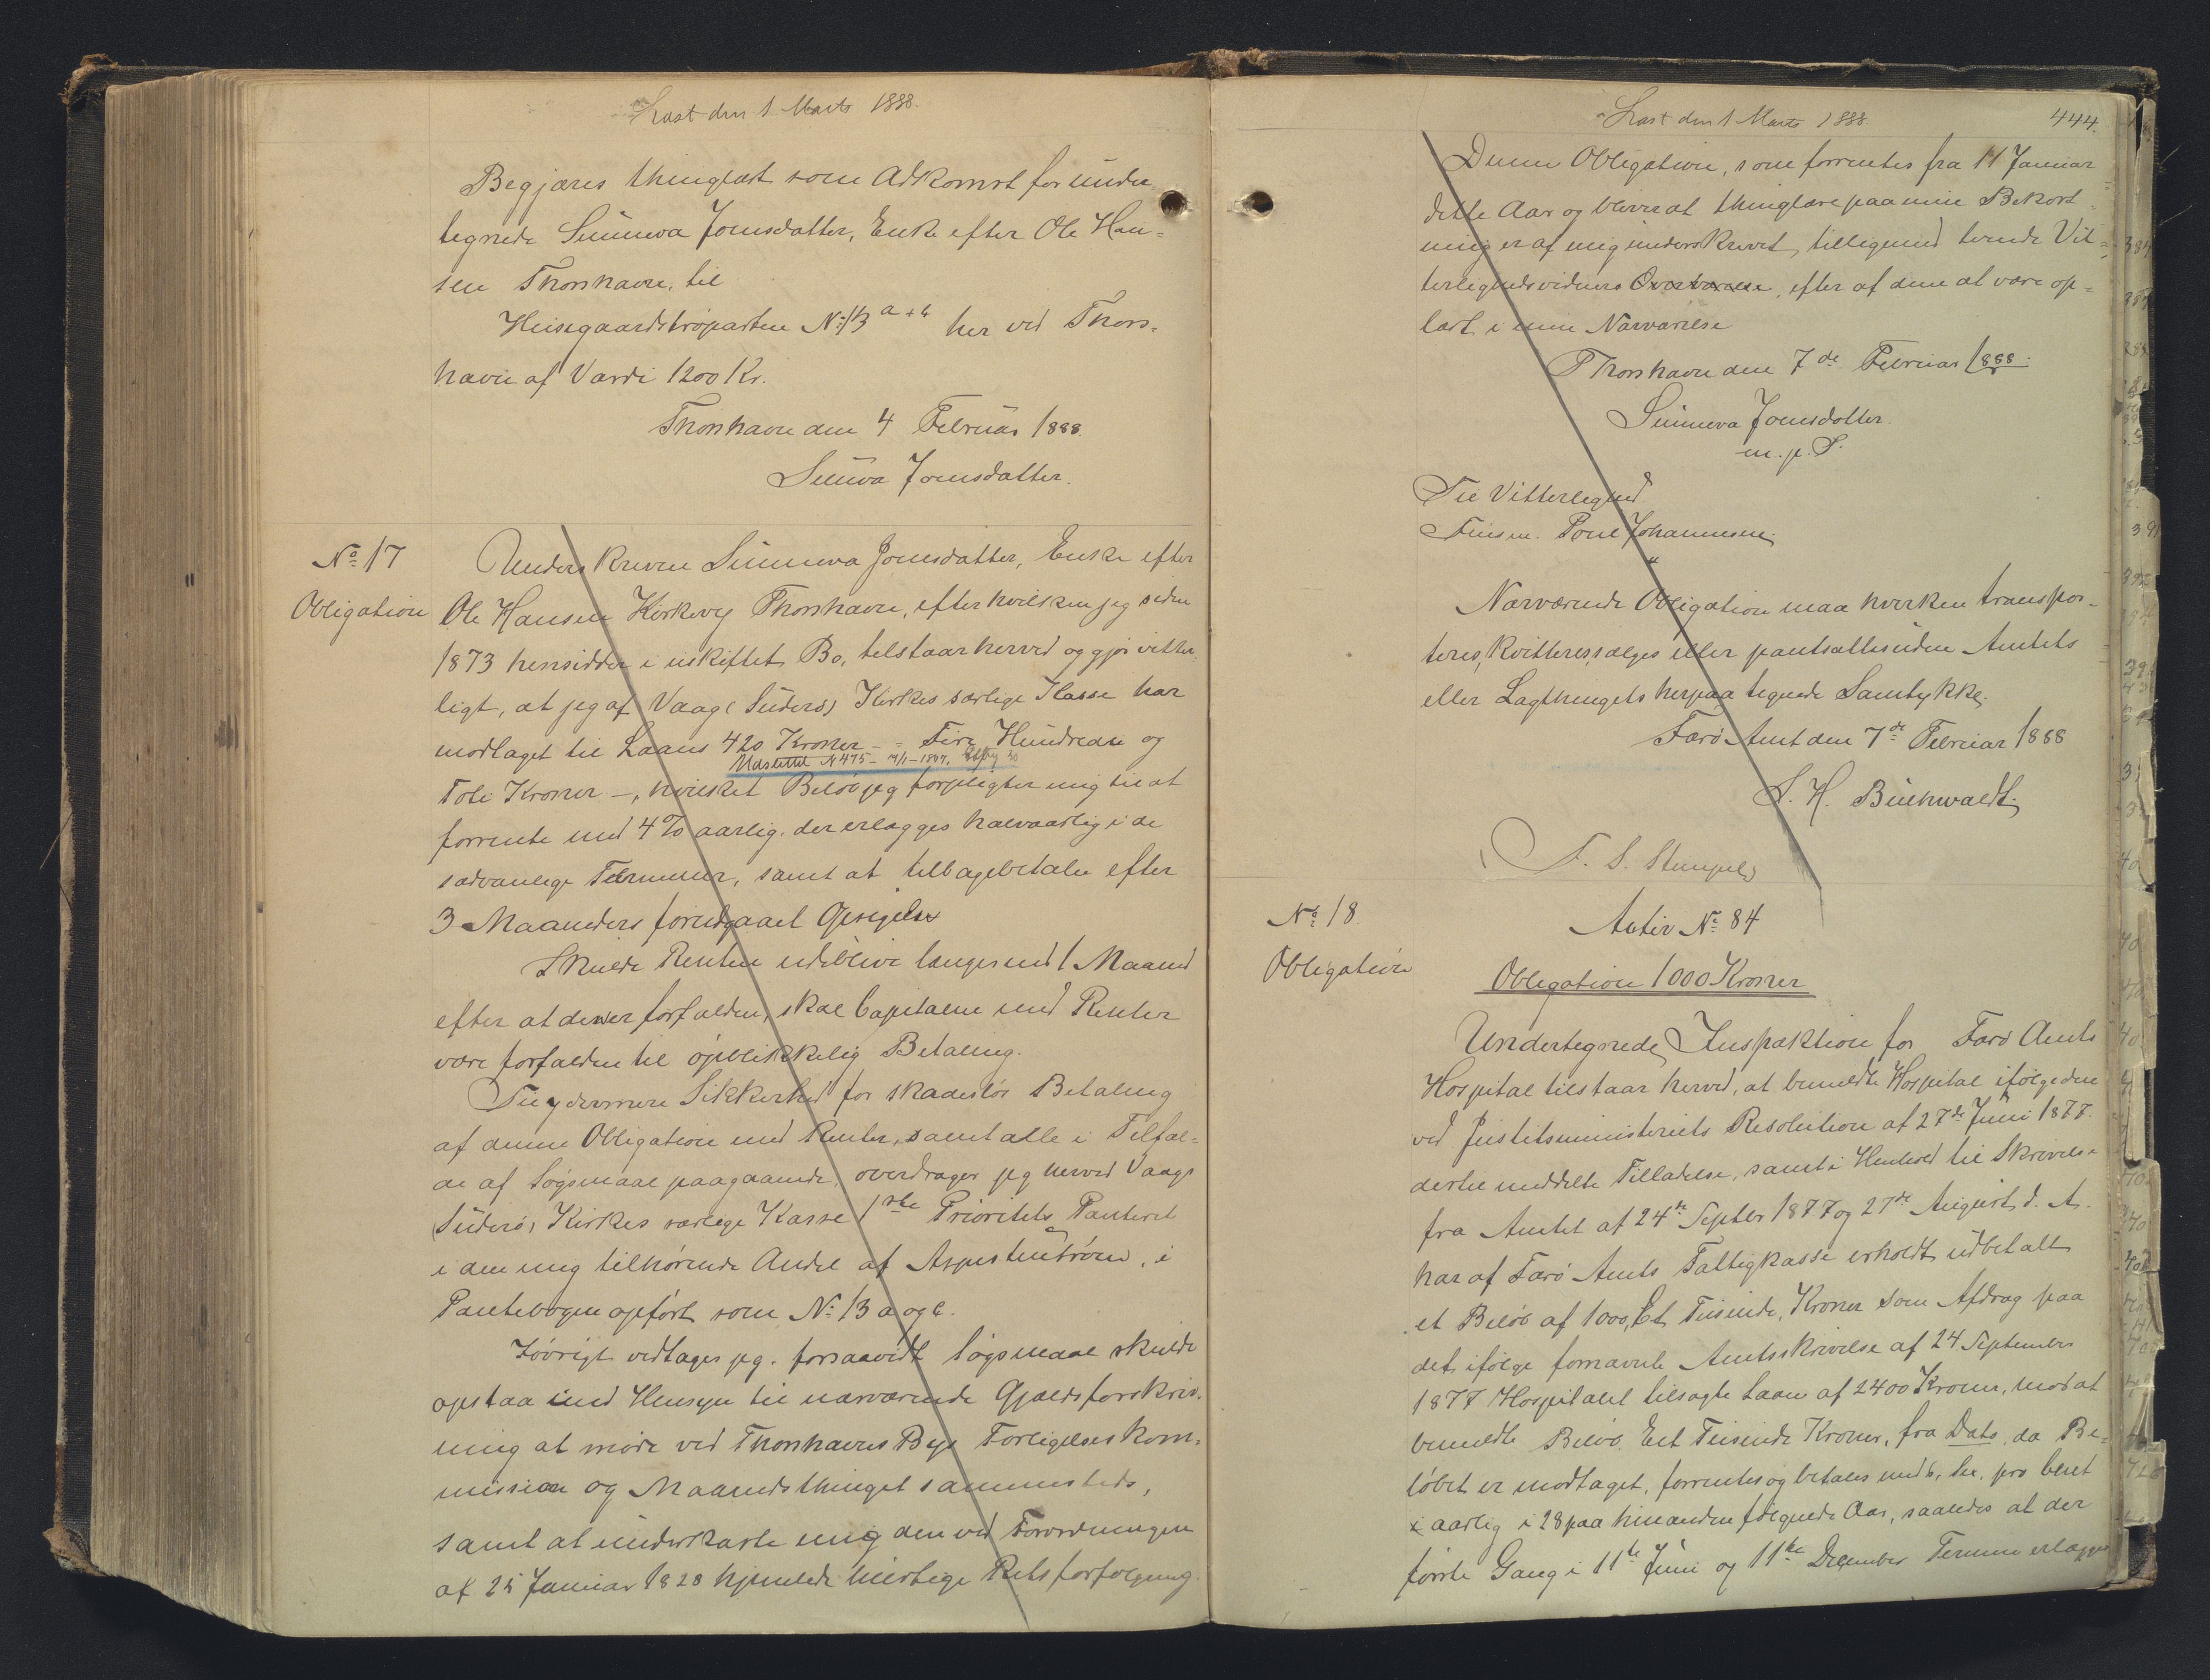 Læst den 1 Marts 1888.
Begjæres thinglæst som Adkomst for under-
tegnede Sunneva Joensdatter, Enke efter Ole Han=
sen Thorshavn, til
Huusgaardstrøparten No 13 a + b her ved Thors=
havn af Værdi 1200 Kr.
Thorshavn den 4 Februar 1888.
Sunva Joensdatter.
No 17
Obligation
Underskrevne Sunneva Joensdatter, Enke efter
Ole Hansen Kirkevej Thorshavn, efter hvilken jeg siden
1873 hensidder i uskiftet Bo, tilstaar herved og gjør vitter-
ligt, at jeg af Vaag (Suderø) Kirkes særlige Kasse har
modtaget til Laans 420 Kroner - = Fire Hundrede og
Udslettet No 475 - 1/1 - 1897,
Tobe Kroner -, hvilket Beløb jeg forpligter mig til at
forrente med 4 % aarlig, der erlægges halvaarlig i de
sædvanlige Terminer, samt at tilbagebetale efter
3 Maaneders forudgaaet Opsigelse
Skulde Renten udeblive længer end 1 Maaned
efter at den er forfalden, skal Capitalen med Renter
være forfalden til øjeblikkelig Betaling.
Til ydermere Sikkerhed for skadesløs Betaling
af denne Obligation med Renter, samt alle i Tilfæl=
de af Søgsmaal paagaaende, overdrager jeg herved Vaags
(Suderø) Kirkes særlige Kasse 1ste Prioritets Panteret
i den mig tilhørende Andel af, i
Pantebogen opført som No 13 a og c.
Iøvrigt vedtager jeg, forsaavidt Søgsmaal skulde
opstaa med Hensyn til nærværende Gjældsforskriv-
ning at møde ved Thorshavns Byes Forligelseskom=
mission og Maanedsthinget sammesteds,
samt at underkaste mig den ved Forordningen
af 25 Januar 1828 hjemlede hurtige Retsforfølgning
Læst den 1 Marts 1888.
444.
Denne Obligation, som forrentes fra 11 Januar
dette Aar og bliver at thinglæse paa min Bekost=
ning er af mig underskrevet, tilligemed tvende Vit=
terlighedsvidners Overværelse, efter af dem at være op=
læst i min Nærværelse
Thorshavn den 7de Februar 1888.
Sunneva Joensdatter.
m. p. P.
Til Vitterlighed
Finsen. Poul Johannesen,
"
Nærværende Obligation maa hverken transpor-
teres, kvitteres, sælges eller pantsættes uden Amtets
eller Lagthingets herpaa tegnede Samtykke.
Færø Amt den 7de Februar 1888
S. H. Buchwaldt.
(F. S. Stempel)
No 18.
Obligation
Activ No 84
Obligation 1000 Kroner
Undertegnede Inspektion for Færø Amts
Hospital tilstaar herved, at bemeldte Hospital ifølge den
ved Justitsministeriets Resolution af 27de Juni 1877.
dertil meddelte Tilladelse, samt i Henhold til Skrivelse
fra Amtet af 24de Septbr 1877 og 27de August d. A.
har af Færø Amts Fattigkasse erholdt udbetalt
et Beløb af 1000, Et Tusinde, Kroner som Afdrag paa
det, ifølge fornævnte Amtsskrivelse af 24 September
1877 Hospitalet tilsagte Laan af 2400 Kroner, mod at
bemeldte Beløb, Eet Tusinde Kroner, fra Dato, da Be=
løbet er modtaget, forrentes og betales med 6, sex, pro Cent
i aarlig i 28 paa hinanden følgende Aar, saaledes at der
første Gang i 11te Juni og 11te December Termin erlægges